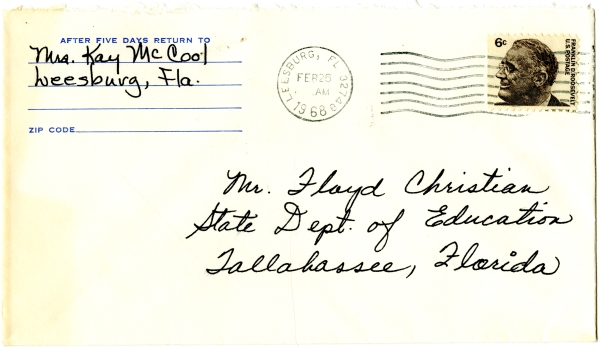 AFTER FIVE DAYS RETURN TO
Mrs. Kay McCool
Leesburg, Fla.
ZIP CODE
LEESBURG, FL 32748
FEB 26
AM
1968
6¢
FRANKLIN D. ROOSEVELT
U.S. POSTAGE
Mr. Floyd Christian
State Dept. of Education
Tallahassee, Florida